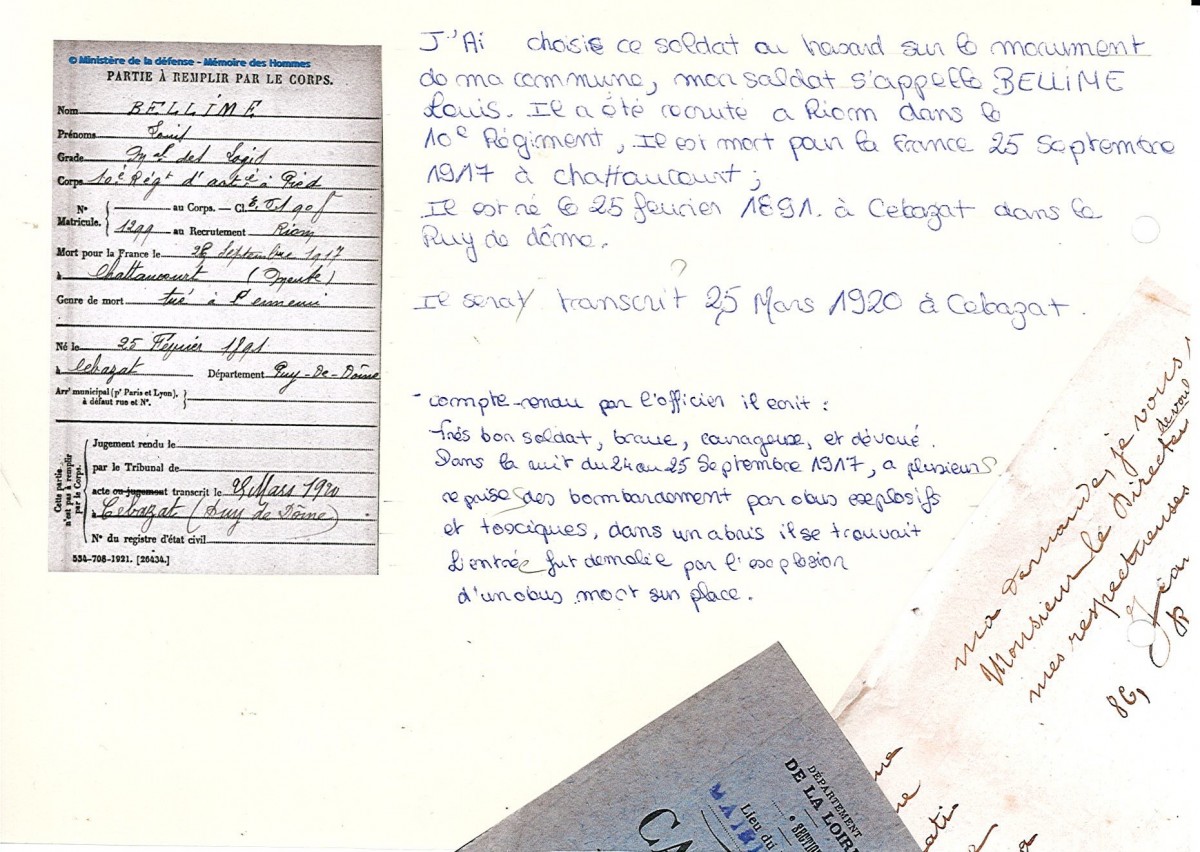 © Ministère de la défense - Mémoire des Hommes
PARTIE À REMPLIR PAR LE CORPS.
Nom BELLIME
Prénoms Louis
Grade Mal des Logis
Corps 10e Régt d'artie à Pied
N° Matricule. { au Corps. — Cl.
1299 au Recrutement Riom
Mort pour la France le 25 Septembre 1917
à Chattancourt (Meuse)
Genre de mort tué à l'ennemi
Né le 25 Février 1891
à Cébazat Département Puy-De-Dôme
Arrt municipal (pr Paris et Lyon),
à défaut rue et N°.
Cette partie n'est pas à remplir par le Corps.
Jugement rendu le
par le Tribunal de
acte ou jugement transcrit le 25 Mars 1920
à Cébazat (Puy de Dôme)
N° du registre d'état civil
534-708-1921. [26434.]
J'Ai choisie ce soldat au hasard sur le monument
de ma commune, mon soldat s'appelle BELLIME
Louis. Il a été recruté a Riom dans le
10e Régiment, Il est mort pour la France 25 Septembre
1917 à chattaucourt;
Il est né le 25 fevrier 1891. à Cebazat dans le
Puy de dôme.
?
Il serat transcrit 25 Mars 1920 à Cebazat.
- compte-rendu par l'officier il ecrit :
Trés bon soldat, brave, courageux, et dévoué.
Dans la nuit du 24 au 25 Septembre 1917, a plusieurs
reprises des bombardement par obus explosifs
et toxciques, dans un abris il se trouvait
L'entrée fut demolie par l'explosion
d'un obus mort sur place.
ma demande, je vous
devoue
Monsieur le Directeur
mes respectueuses
86,
Jean
DÉPARTEMENT
DE LA LOIRE
MAIRI
Lieu du
CA